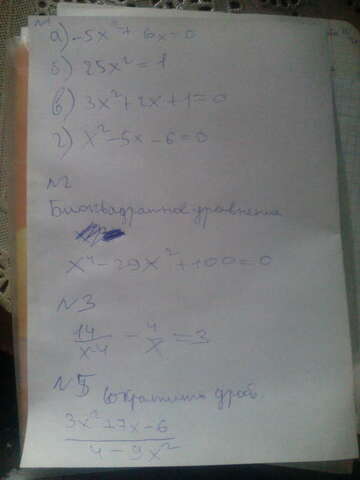 №1
а) -5x² + 6x = 0
б) 25x² = 1
в) 3x² + 2x + 1 = 0
г) x² - 5x - 6 = 0
№2
Биквадратное уравнение
x⁴ - 29x² + 100 = 0
№3
14/x-4 - 4/x = 3
№5 сократить дробь
3x² + 7x - 6 / 4 - 9x²